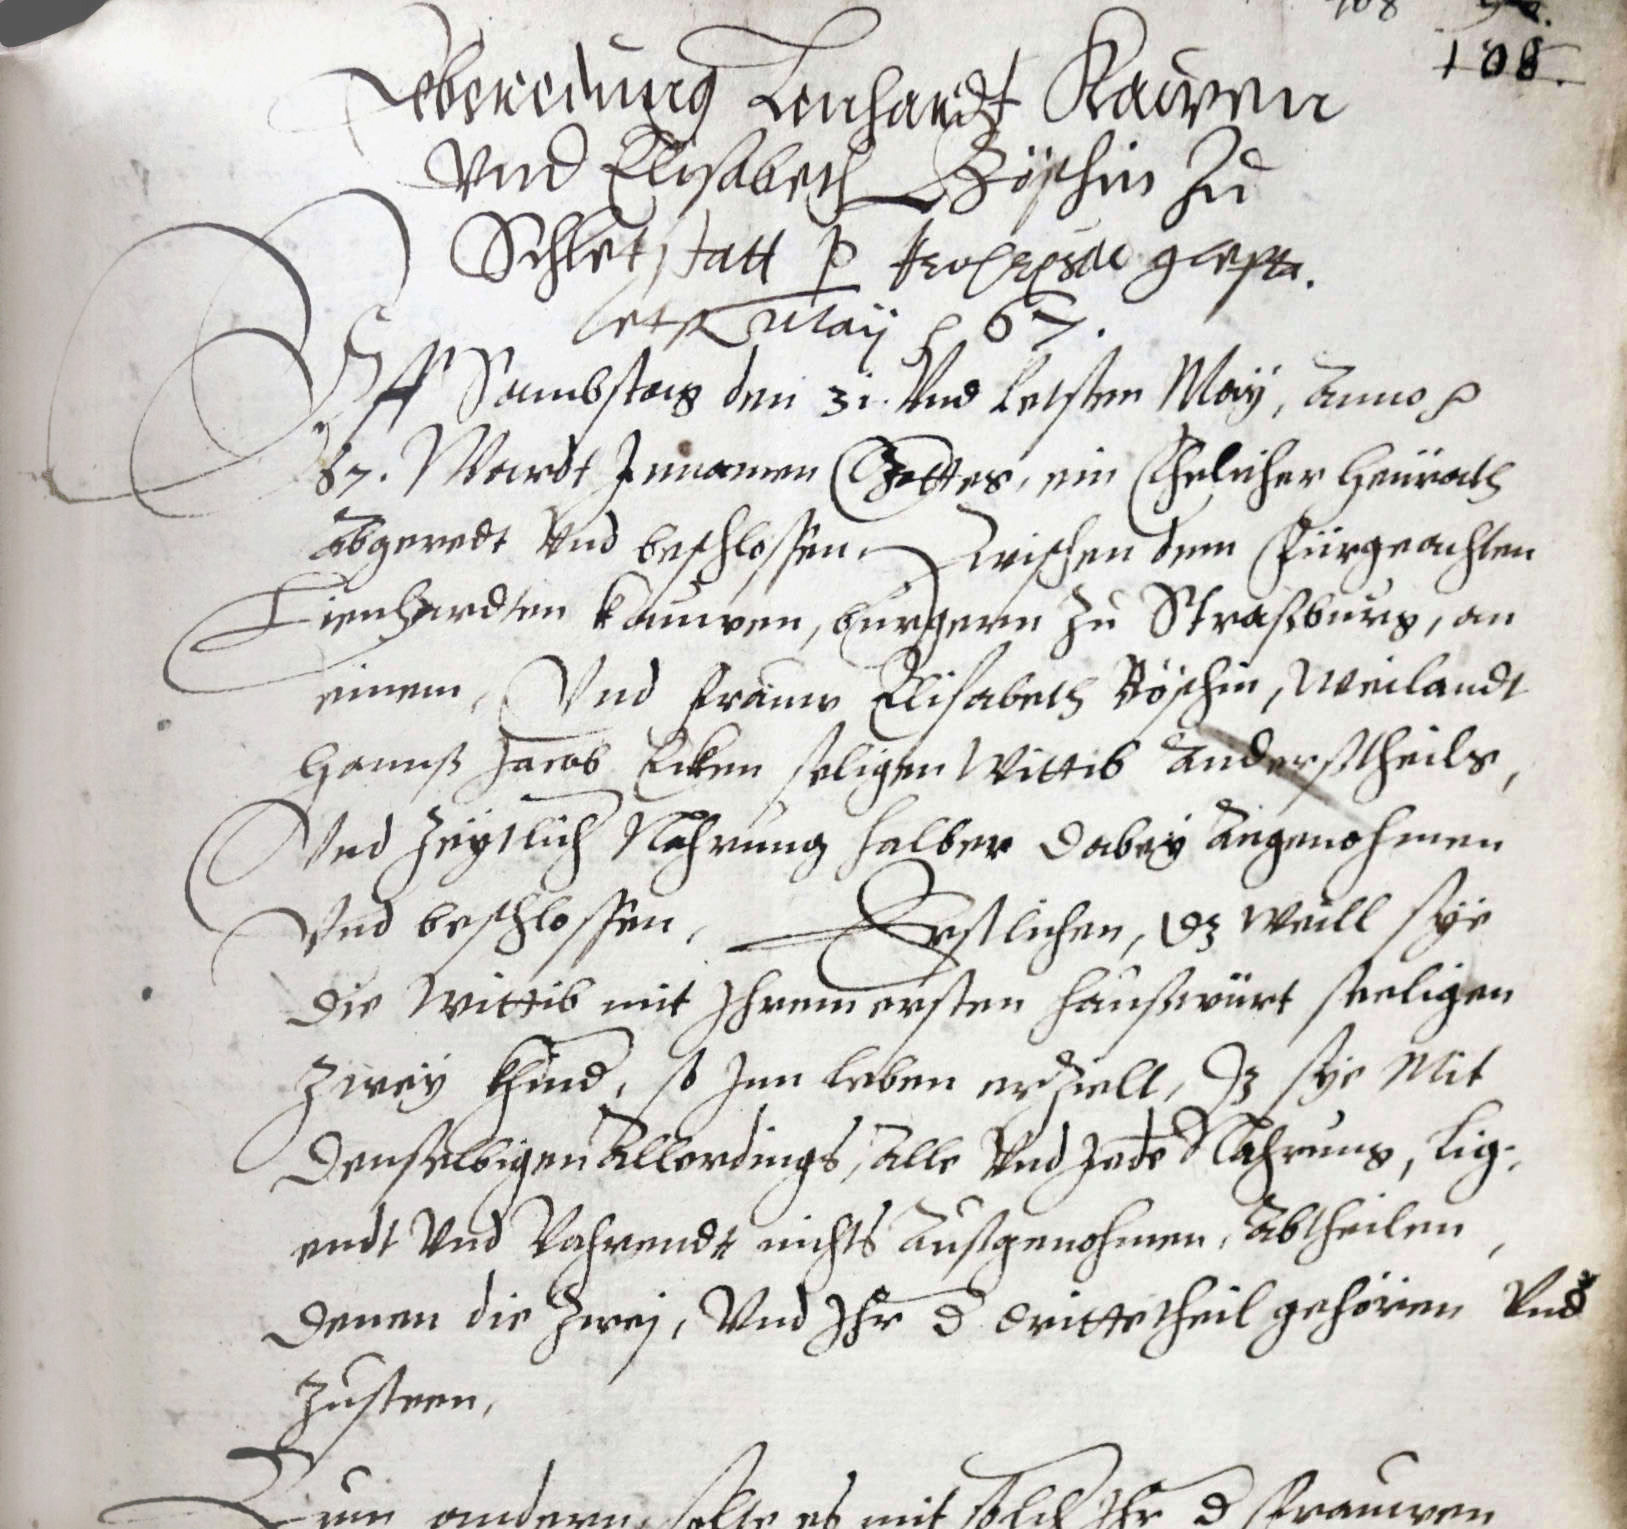 108
108.
Eberedung Lenhardt Kauwen
Vnd Elisabeth Böschin Zu
Schletstatt p
letst May p 67.
Vff Sambstag den 31. Vnd letsten May, Anno p
67. Wardt Jnnamen Gottes, ein Ehelicher Heürath
Abgeredt Vnd beschlossen, Zwischen dem Fürgeachten
Lienhardten Kauwen, burgern Zu Straßburg, an
einem, Vnd frauw Elisabeth Böschin, Weilandt
Hannß Jacob Ecken seligen Wittib Anderstheils,
Vnd Zeÿtlich Nahrung halber dabeÿ Angenohmen
Vnd beschlossen, Erstlichen, dz weill sÿe
die Wittib mit Jhrem ersten haußwürt seeligen
Zweÿ Khind, so Jnn leben erZielt, dz sÿe Mit
denselbigen Allerdings, Alle Vnd Jede Nahrung, lig-
endt Vnd Vahrendt nichts Außgenohmen, Abtheilen,
denen die Zweÿ, Vnd Jhr d drittetheil gehörien Vnd
Zusteen,
Zum andern, solle es mit solch Jhr d frauwen